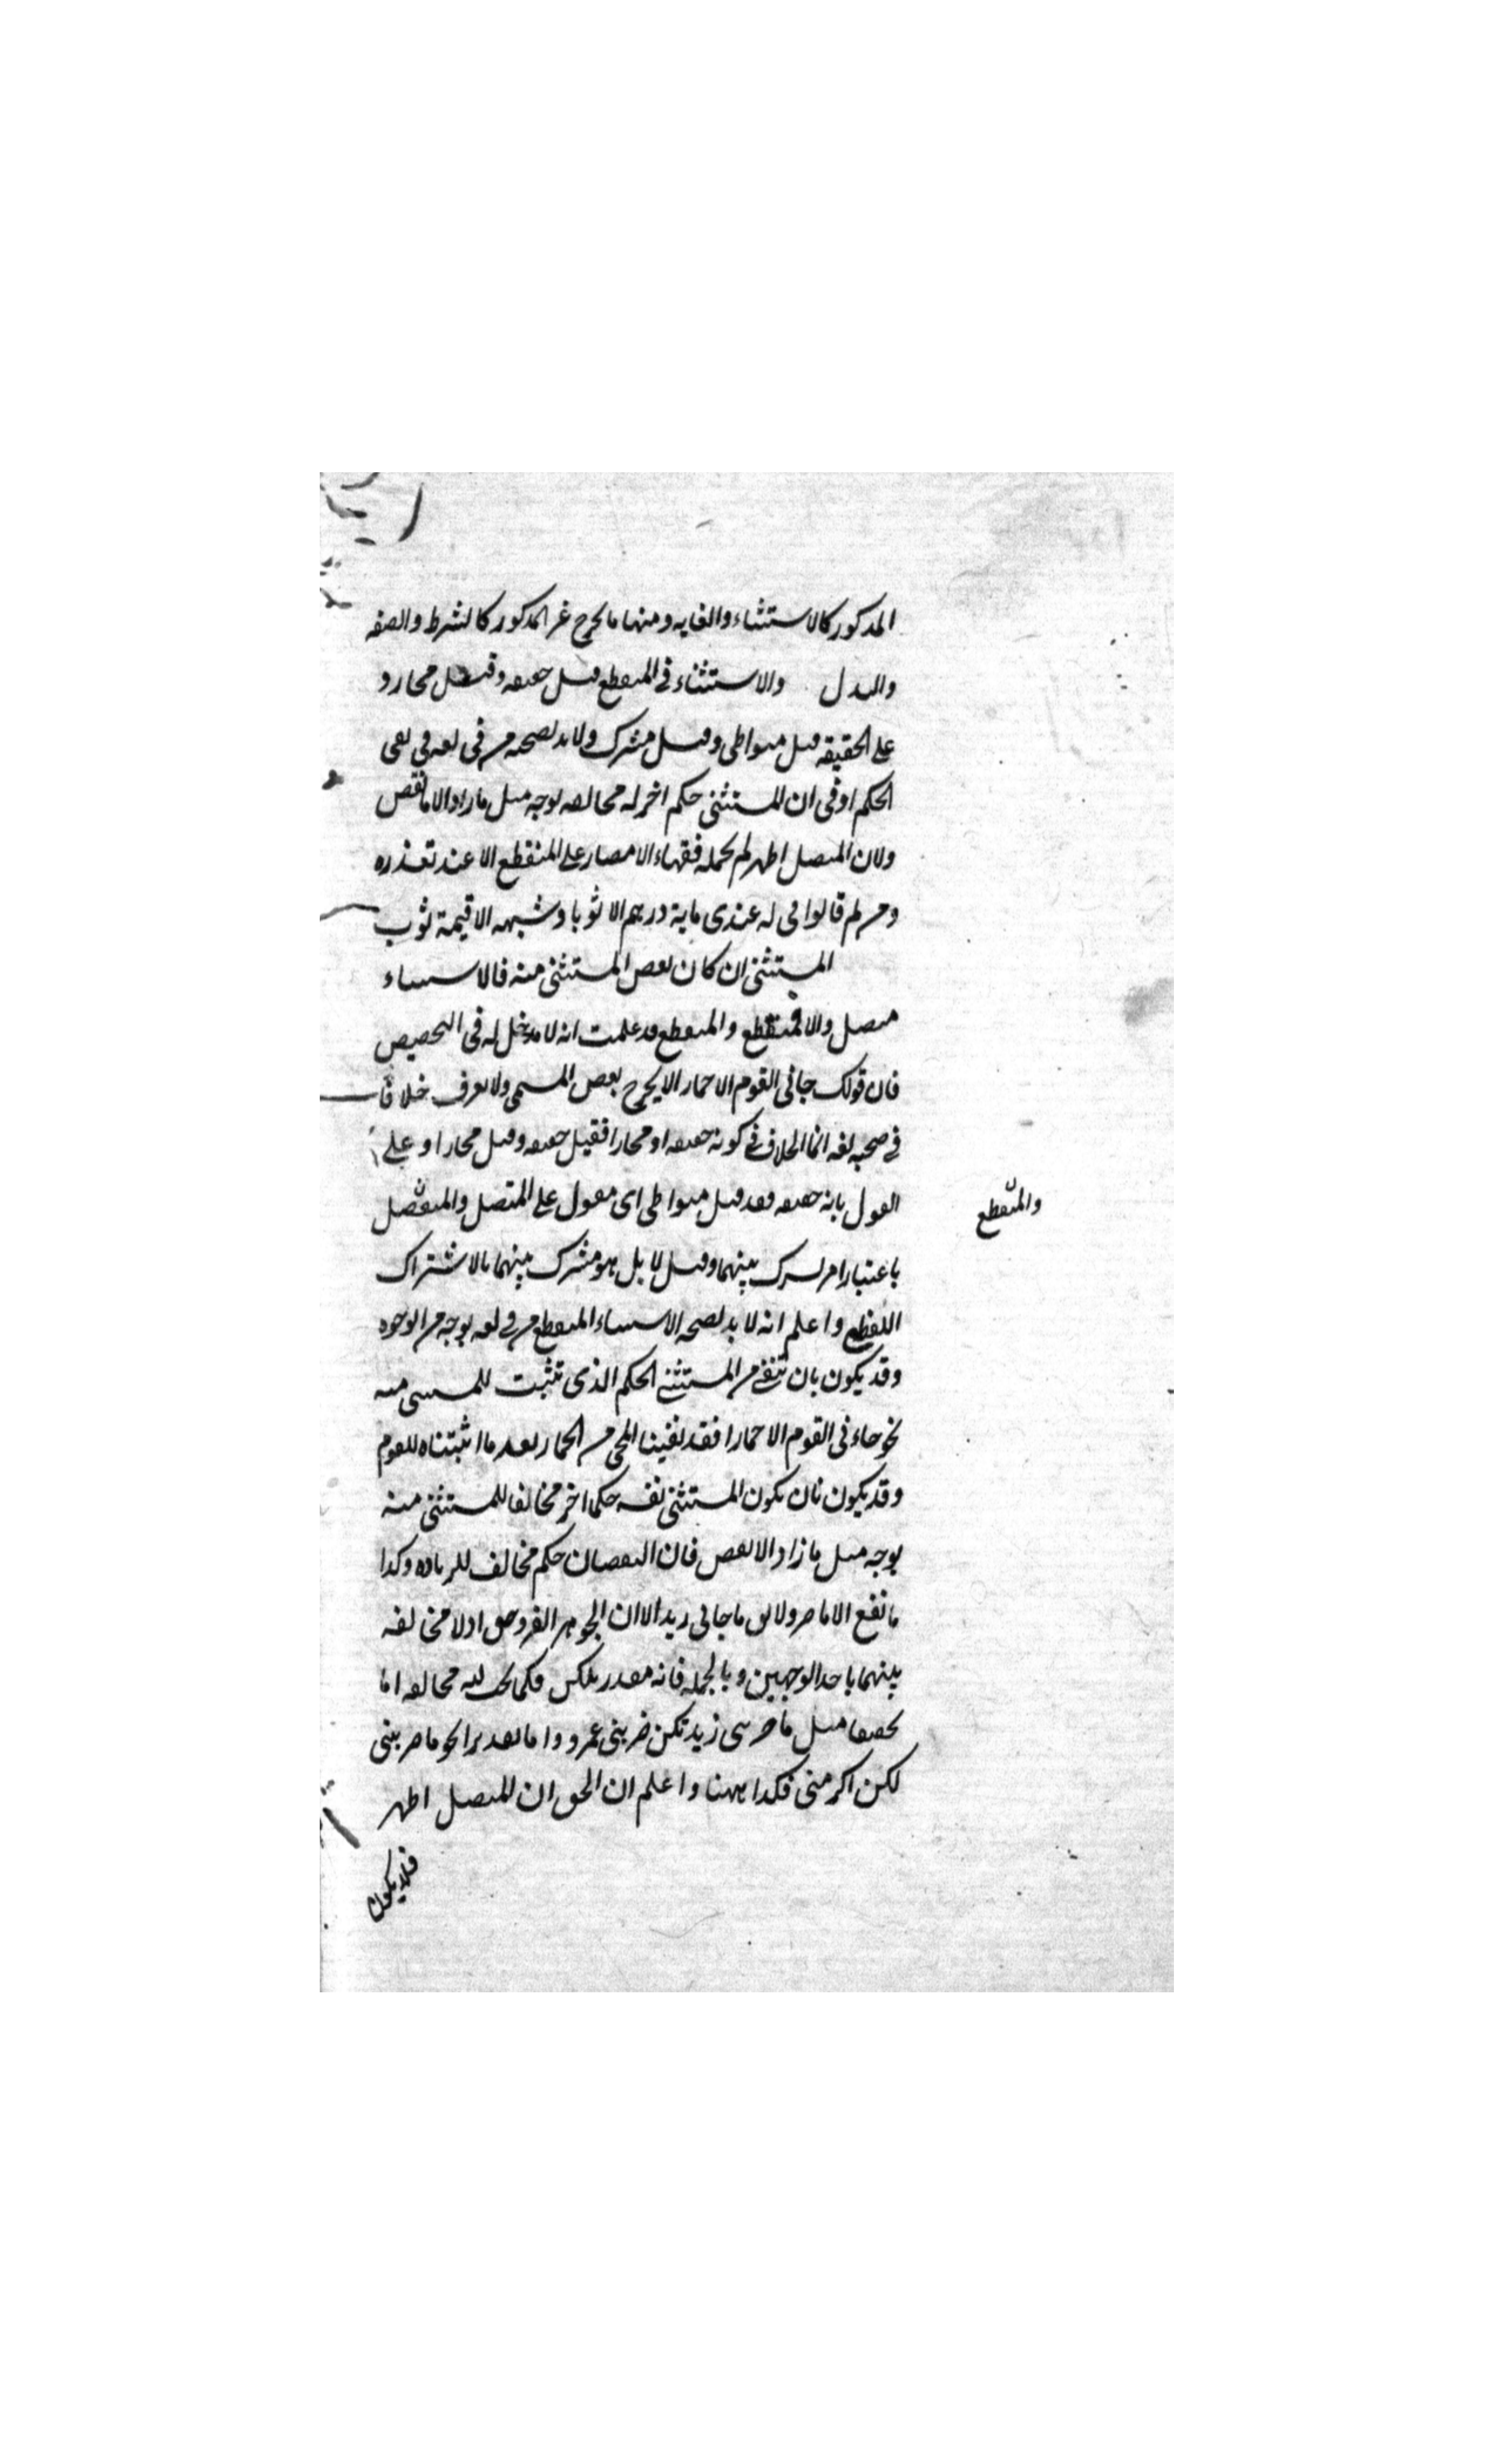 المذكور كالاستثناء والغايه ومنها ما يخرج غير المذكور كالشرط والصفه
والبدل والاستثناء في المنقطع قيل حقيقه وقيل مجاز و
على الحقيقه قيل متواطى وقيل مشترك ولا بد لصحته من مخالفه في نفى
الحكم او في ان المستثنى حكم اخر له مخالفه بوجه مثل ما زاد الا ما نقص
ولان المتصل اظهر لم يحمله فقهاء الامصار على المنقطع الا عند تعذره
ومن ثم قالوا في له عندى ماية درهم الا ثوبا وشبهه الا قيمة ثوب
المستثنى ان كان بعض المستثنى منه فالاستثناء
متصل والا فمنقطع والمنقطع قد علمت انه لا مدخل له في التخصيص
فان قولك جانى القوم الا حمار الا يخرج بعض المسمى ولا نعرف خلافا
في صحته لغه انما الخلاف في كونه حقيقه او مجازا فقيل حقيقه وقيل مجازا وعلى
القول بانه حقيقه فقد قيل متواطى اى مقول على المتصل والمنفصل
والمنقطع
باعتبار امر مشترك بينهما وقيل لا بل هو مشترك بينهما بالاشتراك
اللفظى واعلم انه لا بد لصحه الاستثناء المنقطع من مخالفه بوجه من الوجوه
وقد يكون بان ننفى من المستثنى الحكم الذى تثبت للمستثنى منه
نحو جاءنى القوم الا حمارا فقد نفينا المجى من الحمار بعد ما اثبتناه للقوم
وقد يكون بان يكون المستثنى نفسه حكما اخر مخالفا للمستثنى منه
بوجه مثل ما زاد الا نقص فان النقصان حكم مخالف للزياده وكذا
ما نفع الا ما ضر ولا يق ما جانى زيد الا ان الجوهر الفرد حق اذ لا مخالفه
بينهما باحد الوجهين وبالجمله فانه مقدر بلكن فكما يجب فيه مخالفه اما
تحقيقا مثل ما ضربنى زيد لكن ضربنى عمرو واما تقديرا نحو ما ضربنى
لكن اكرمنى فكذا ههنا واعلم ان الحق ان المتصل اظهر
فلا يكون